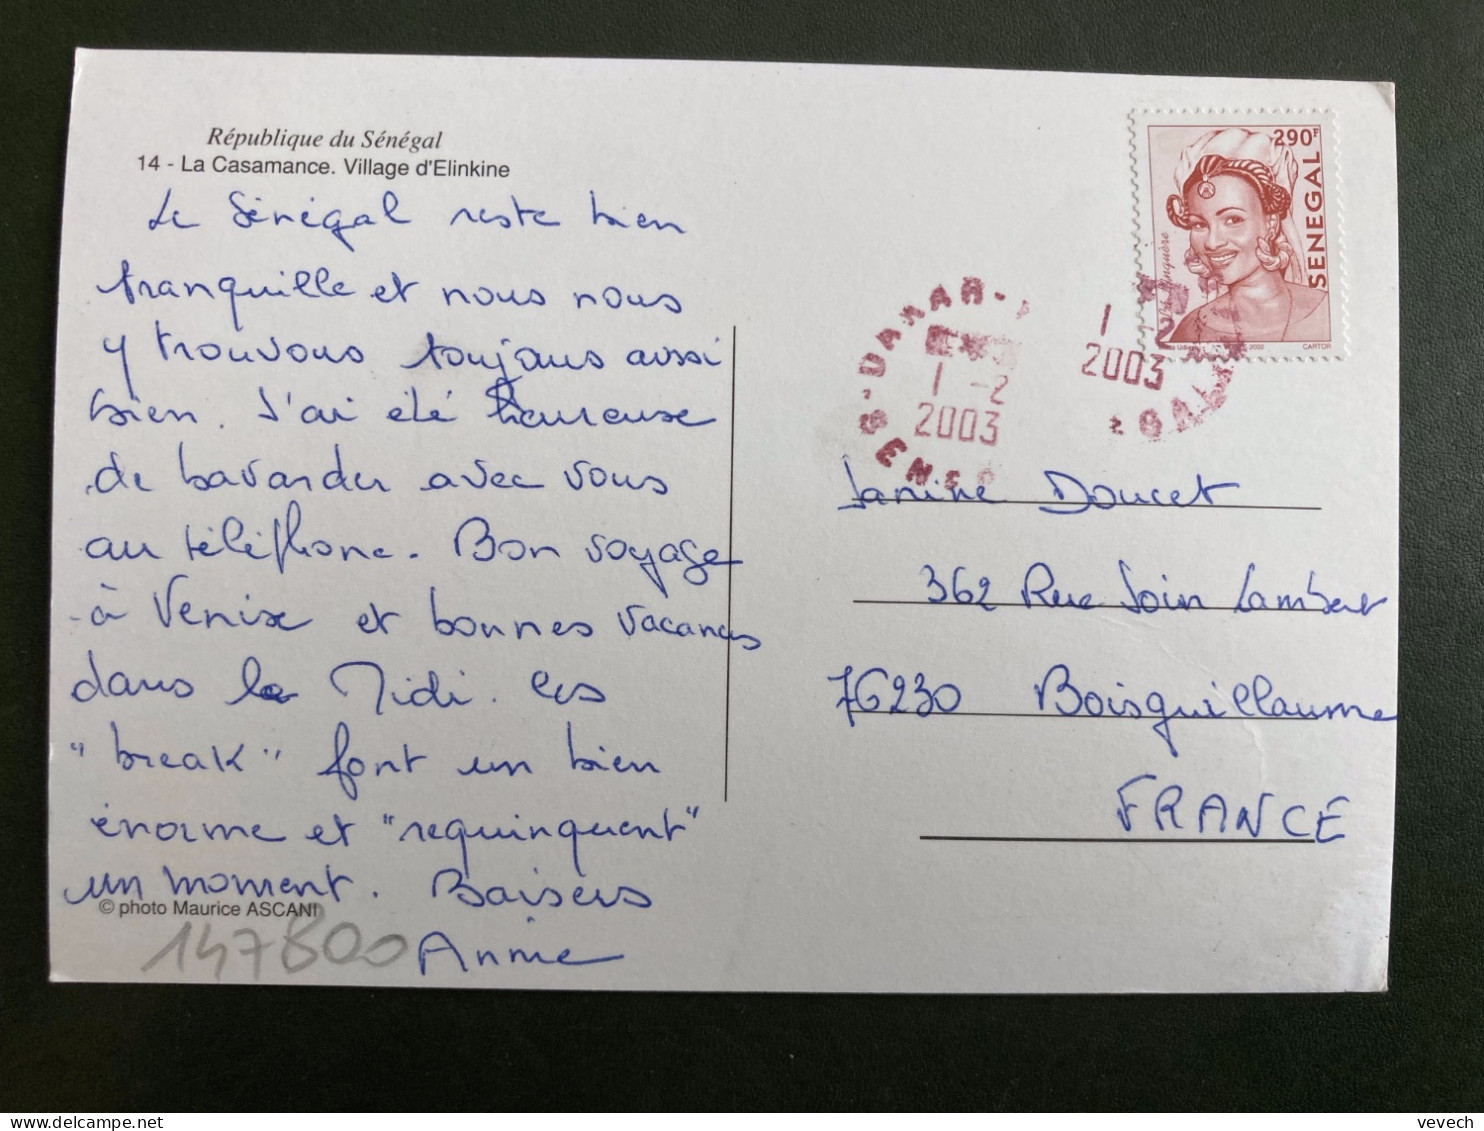 République du Sénégal
14 - La Casamance. Village d'Elinkine
Le Sénégal reste bien
tranquille et nous nous
y trouvons toujours aussi
bien. J'ai été heureuse
de bavarder avec vous
au téléphone. Bon voyage
à Venise et bonnes vacances
dans le Midi. Ces
"break" font un bien
énorme et "requinquent"
un moment. Baisers
© photo Maurice ASCANI
Annie
147800
290F
SENEGAL
CARTOR
DAKAR
1 -2
2003
SENEG
1
2
2003
EGAL
Janine Doucet
362 Rue Join Lambert
76230 Boisguillaume
FRANCE
vevech